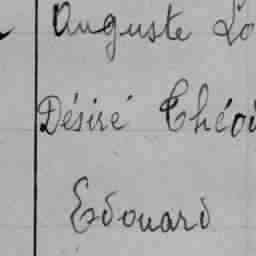 Auguste Lo
Désiré Théo
Edouard